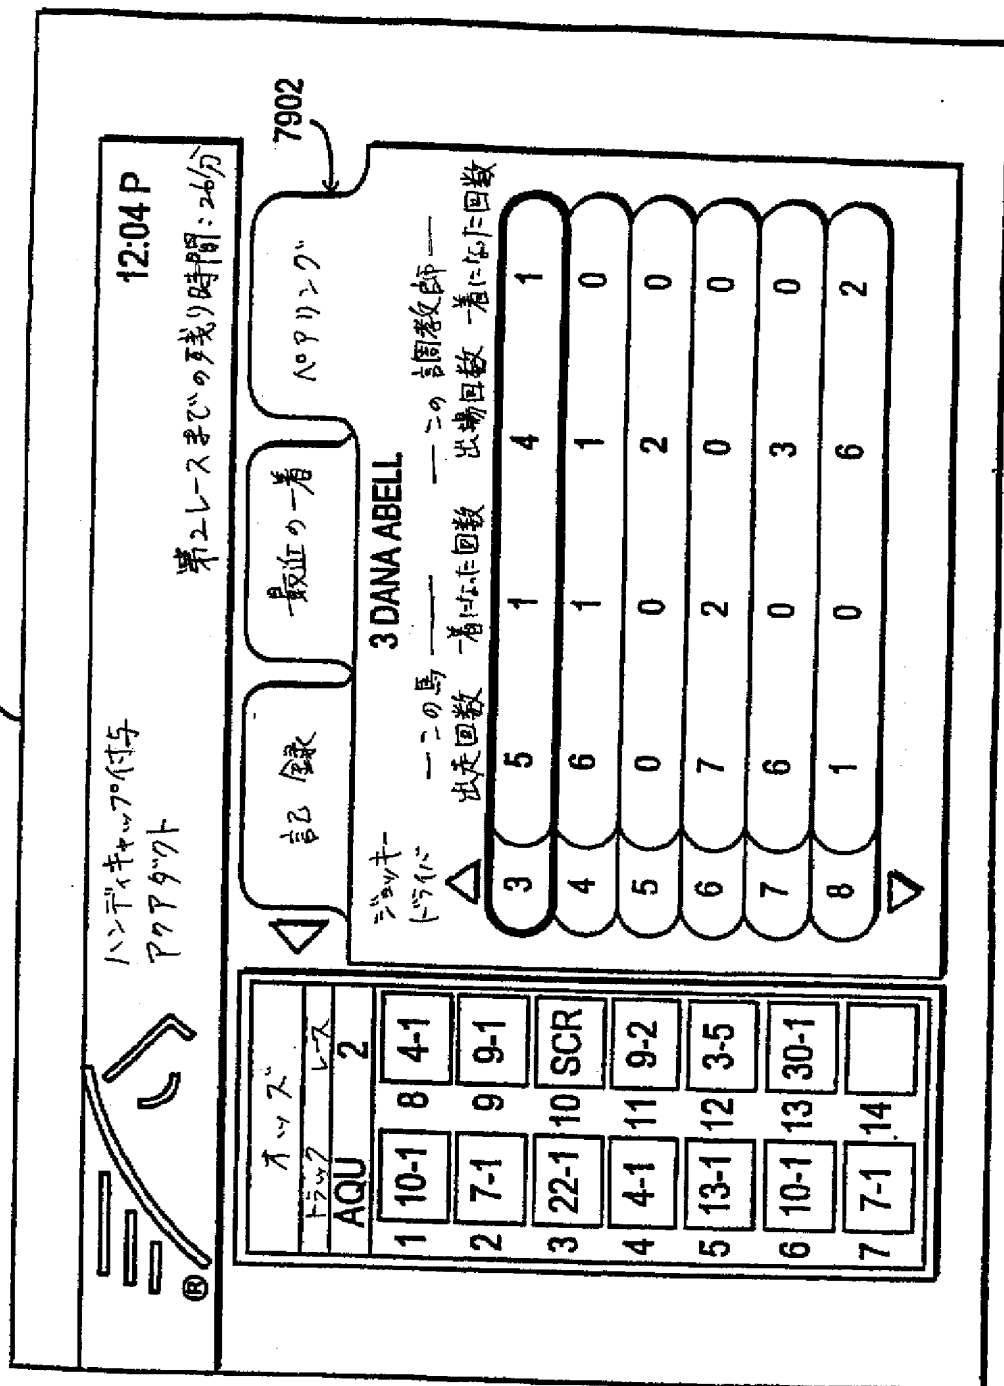 ハンディキャップ付与 12:04 P
アクアダクト 第2レースまでの残り時間：26分
7902
オッズ
トラック レース
AQU 2
1 10-1 8 4-1
2 7-1 9 9-1
3 22-1 10 SCR
4 4-1 11 9-2
5 13-1 12 3-5
6 10-1 13 30-1
7 7-1 14
®
記録 最近の一着 ペアリング
3 DANA ABELL
ジョッキー ―この馬― ―この調教師―
ドライバ 出走回数 一着になった回数 出場回数 一着になった回数
3 5 1 4 1
4 6 1 1 0
5 0 0 2 0
6 7 2 0 0
7 6 0 3 0
8 1 0 6 2